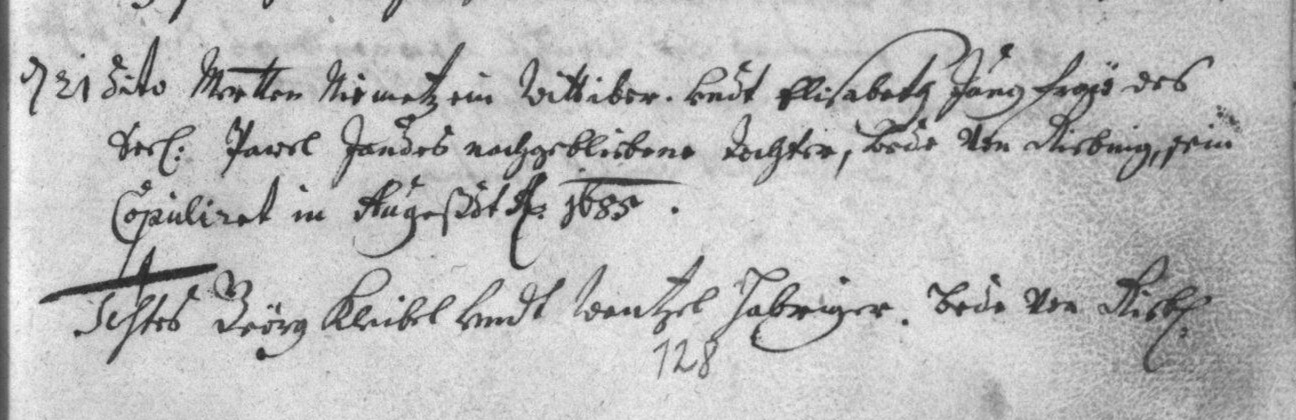 21 dito Merten Niemetz ein Wittiber. Undt Elisabeth Jungfraw des
Seel: Pawel Jandes nachgebliebene Tochter, Bede von Riebnig, sein
Copuliret in Augustus A: 1685.
Testes Georg Kleibel Undt Wentzel Habriger. Bede von Rieb:
128